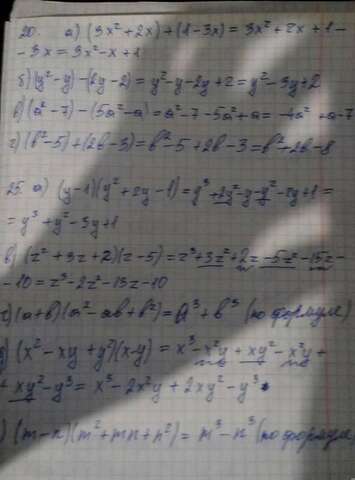 20. а) (3x² + 2x) + (1 - 3x) = 3x² + 2x + 1 -
- 3x = 3x² - x + 1
б) (y² - y) - (2y - 2) = y² - y - 2y + 2 = y² - 3y + 2
в) (a² - 7) - (5a² - a) = a² - 7 - 5a² + a = -4a² + a - 7
г) (b² - 5) + (2b - 3) = b² - 5 + 2b - 3 = b² + 2b - 8
25. а) (y - 1)(y² + 2y - 1) = y³ + 2y² - y - y² - 2y + 1 =
= y³ + y² - 3y + 1
в) (z² + 3z + 2)(z - 5) = z³ + 3z² + 2z - 5z² - 15z -
- 10 = z³ - 2z² - 13z - 10
г) (a + b)(a² - ab + b²) = a³ + b³ (по формуле)
д) (x² - xy + y²)(x - y) = x³ - x²y + xy² - x²y +
+ xy² - y³ = x³ - 2x²y + 2xy² - y³.
) (m - n)(m² + mn + n²) = m³ - n³ (по формул